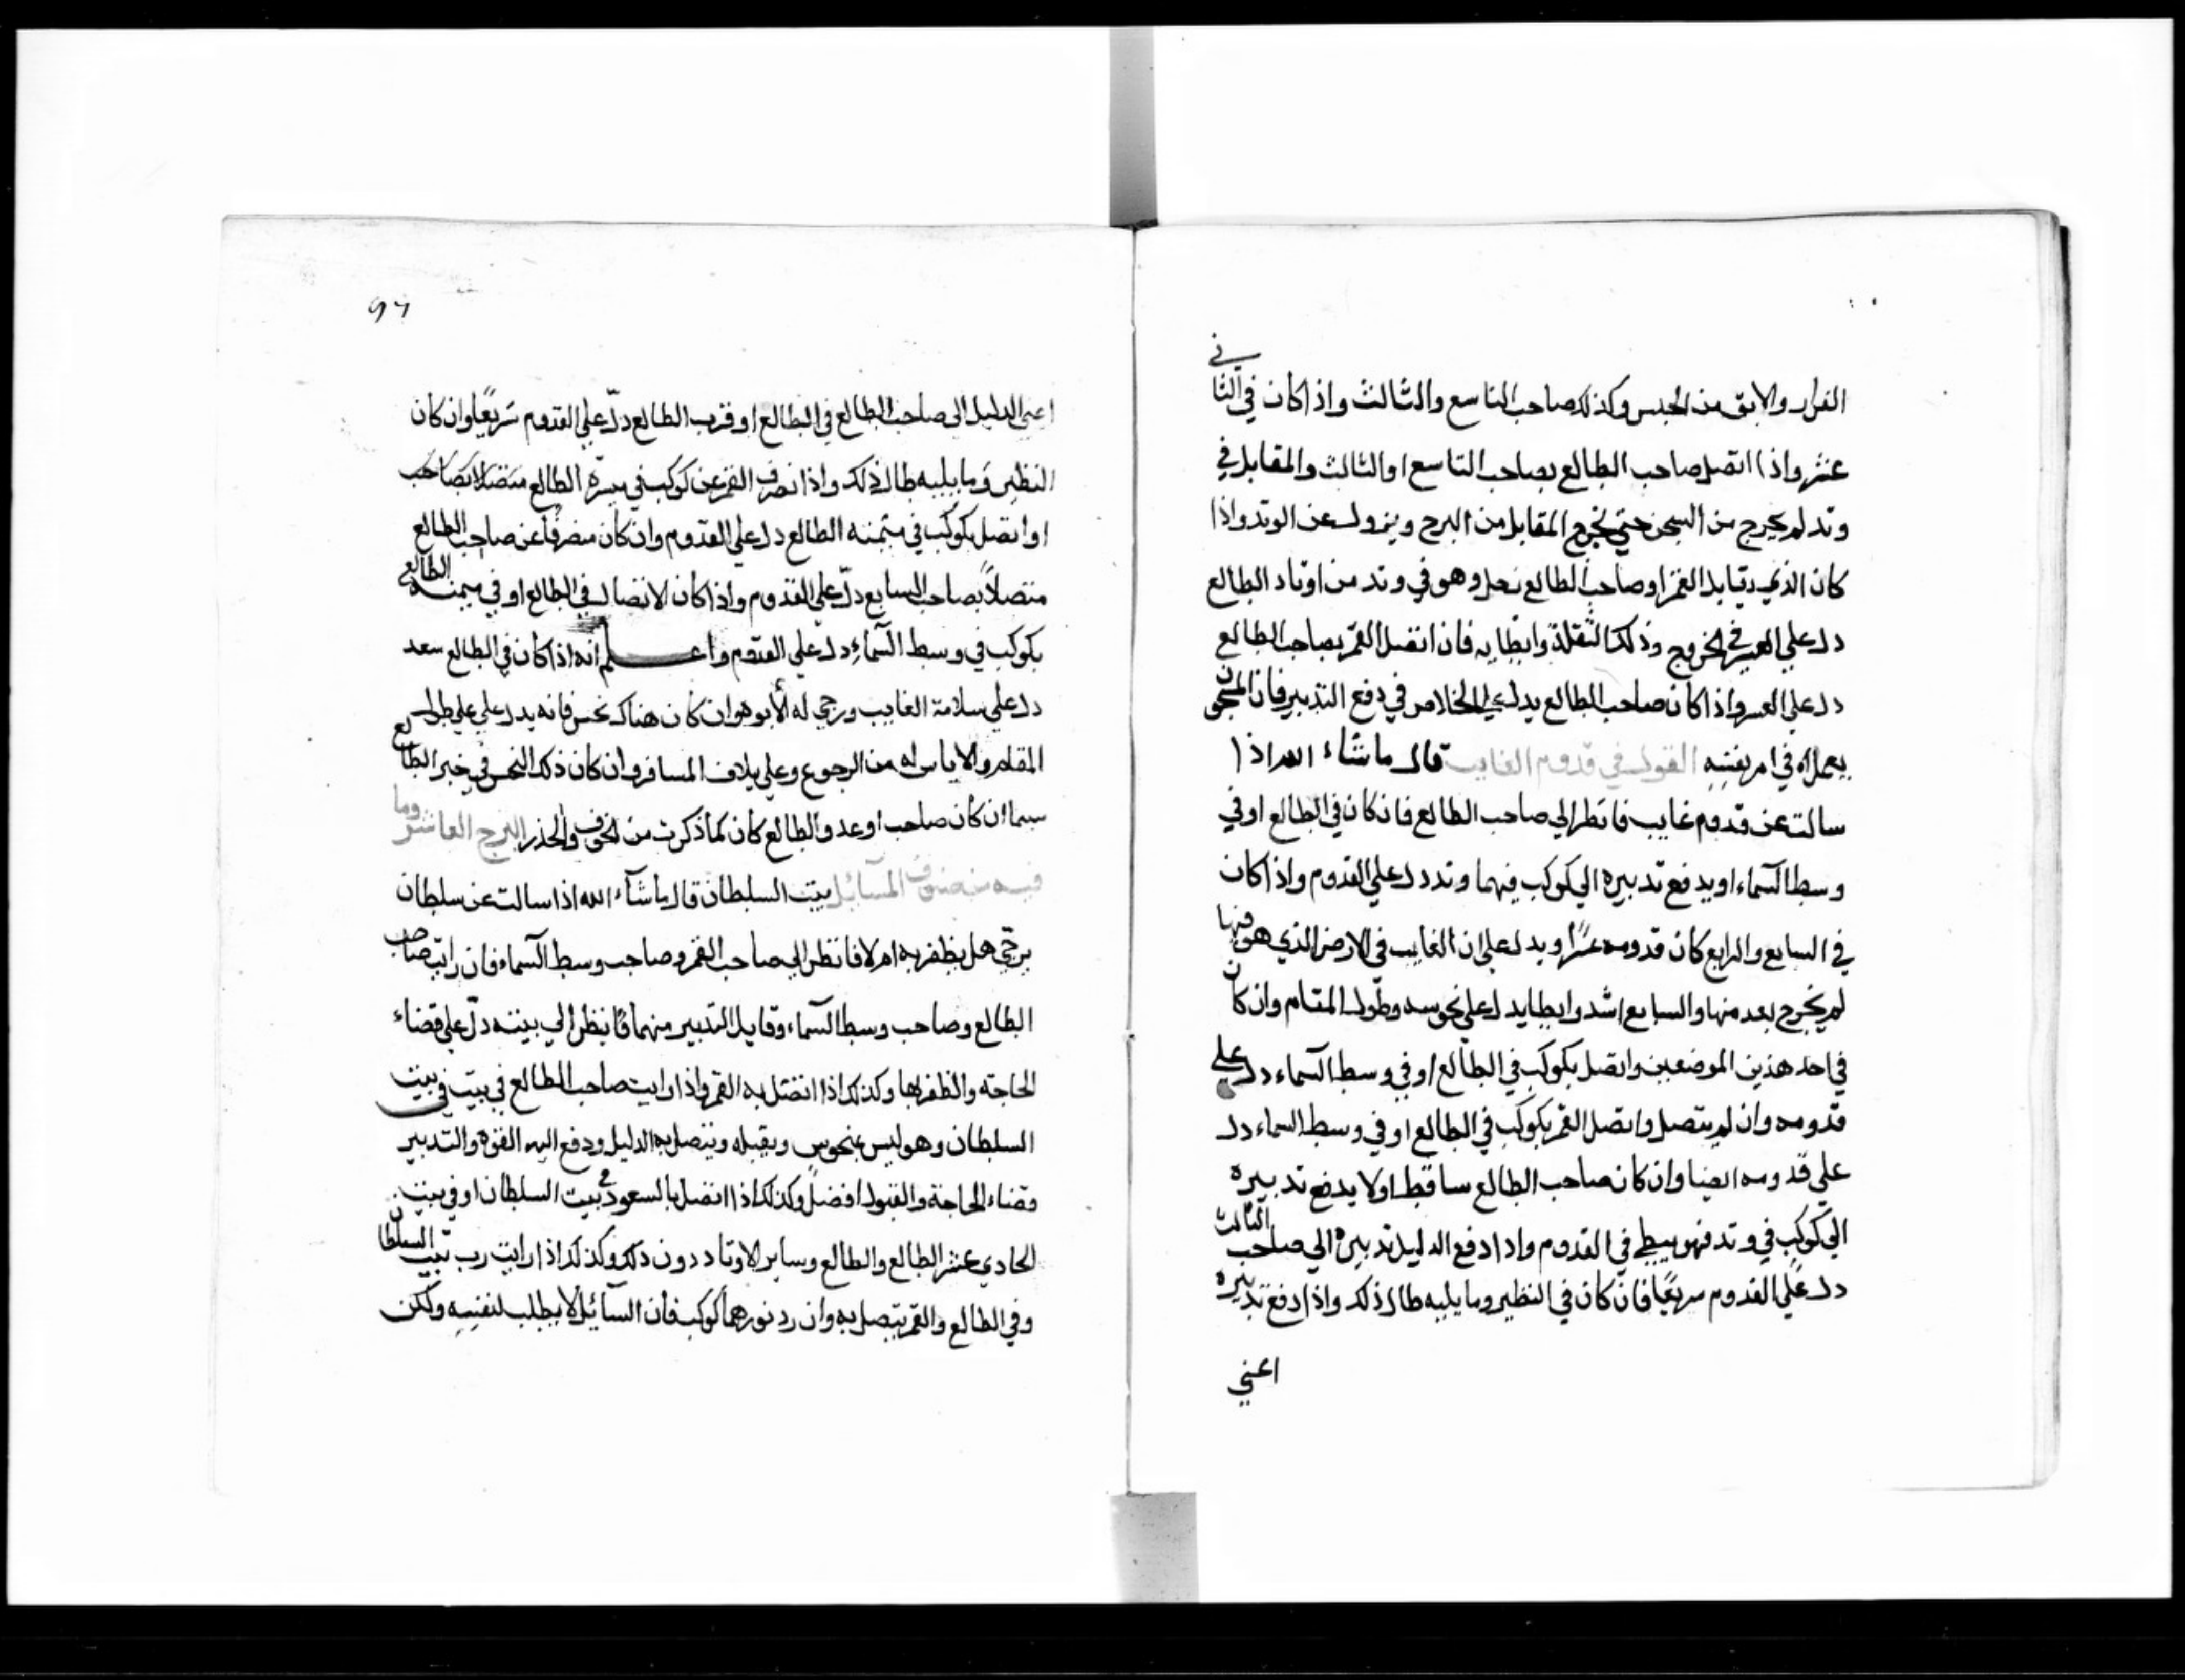 الفرار والابق من الحبس وكذلك صاحب التاسع والثالث واذا كان في الثاني
عشر واذا اتصل صاحب الطالع بصاحب التاسع او الثالث والمقابل في
وتد لم يخرج من السجن حتي يخرج المقابل من البرج ويزول عن الوتد واذا
كان الذي يقابل القمر او صاحب الطالع زحل وهو في وتد من اوتاد الطالع
دل علي العسر في الخروج وذلك لثقله وابطايه فان اتصل القمر بصاحب الطالع
دل علي العسر واذا كان صاحب الطالع يدل علي الخلاص في دفع التدبير فان المسجون
يعمل له في امر نفسه القول في قدوم الغايب قال ما شاء الله اذا
سالت عن قدوم غايب فانظر الي صاحب الطالع فان كان في الطالع او في
وسط السماء او يدفع تدبيره الي كوكب فيهما وتد دل علي القدوم واذا كان
في السابع والرابع كان قدومه عسرا ويدل علي ان الغايب في الارض الذي هو فيها
لم يخرج بعد منها والسابع اشد وابطا يدل علي نحوسه وطول المقام وان كان
في احد هذين الموضعين واتصل بكوكب في الطالع او في وسط السماء دل علي
قدومه وان لم يتصل واتصل القمر بكوكب في الطالع او في وسط السماء دل
علي قدومه ايضا وان كان صاحب الطالع ساقطا ولا يدفع تدبيره
الي كوكب في وتد فهو يبطي في القدوم واذا دفع الدليل تدبيره الي صاحب الثالث
دل علي القدوم سريعا فان كان في النظير وما يليه طال ذلك واذا دفع تدبيره
اعني
96
اعني الدليل الى صاحب الطالع في الطالع او قرب الطالع دل علي القدوم سريعا وان كان
النظير وما يليه طال ذلك واذا انصرف القمر عن كوكب في ميسرة الطالع متصلا بصاحب
او اتصل بكوكب في ميمنه الطالع دل علي القدوم وان كان منصرفا عن صاحب الطالع
متصلا بصاحب السابع دل علي القدوم واذا كان الاتصال في الطالع او في ميمنه الطالع
بكوكب في وسط السماء دل علي القدوم واعلم انه اذا كان في الطالع سعد
دل علي سلامة الغايب ورجي له الابوه وان كان هناك نحس فانه يدل علي علي طول
المقام والاياس له من الرجوع وعلي تلاف المسافر وان كان ذلك النحس في خير الطالع
سيما ان كان صاحب او عدو الطالع كان كما ذكرت من الخوف والحذر البرج العاشر وما
فيه من صنوف المسائل بيت السلطان قال ما شاء الله اذا سالت عن سلطان
يرجي هل يظفر به ام لا فانظر الى صاحب القمر وصاحب وسط السماء فان رايت صاحب
الطالع وصاحب وسط السماء وقابل التدبير منهما قا ينظر الي بيته دل علي قضاء
الحاجته والظفر بها وكذلك اذا اتصل به القمر واذا رايت صاحب الطالع في بيت في بيت
السلطان وهو ليس بمنحوس ويقبله ويتصل به الدليل ودفع اليه القوة والتدبير
وقضاء الحاجة والقبول افضل وكذلك اذا اتصل بالسعود في بيت السلطان او في بيت
الحادي عشر الطالع والطالع وساير الاوتاد دون ذلك وكذلك اذا رايت رب بيت السلطان
وفي الطالع والقمر يتصل به وان رد نورهما كوكب فان السائل لا يطلب لنفسه ولكن